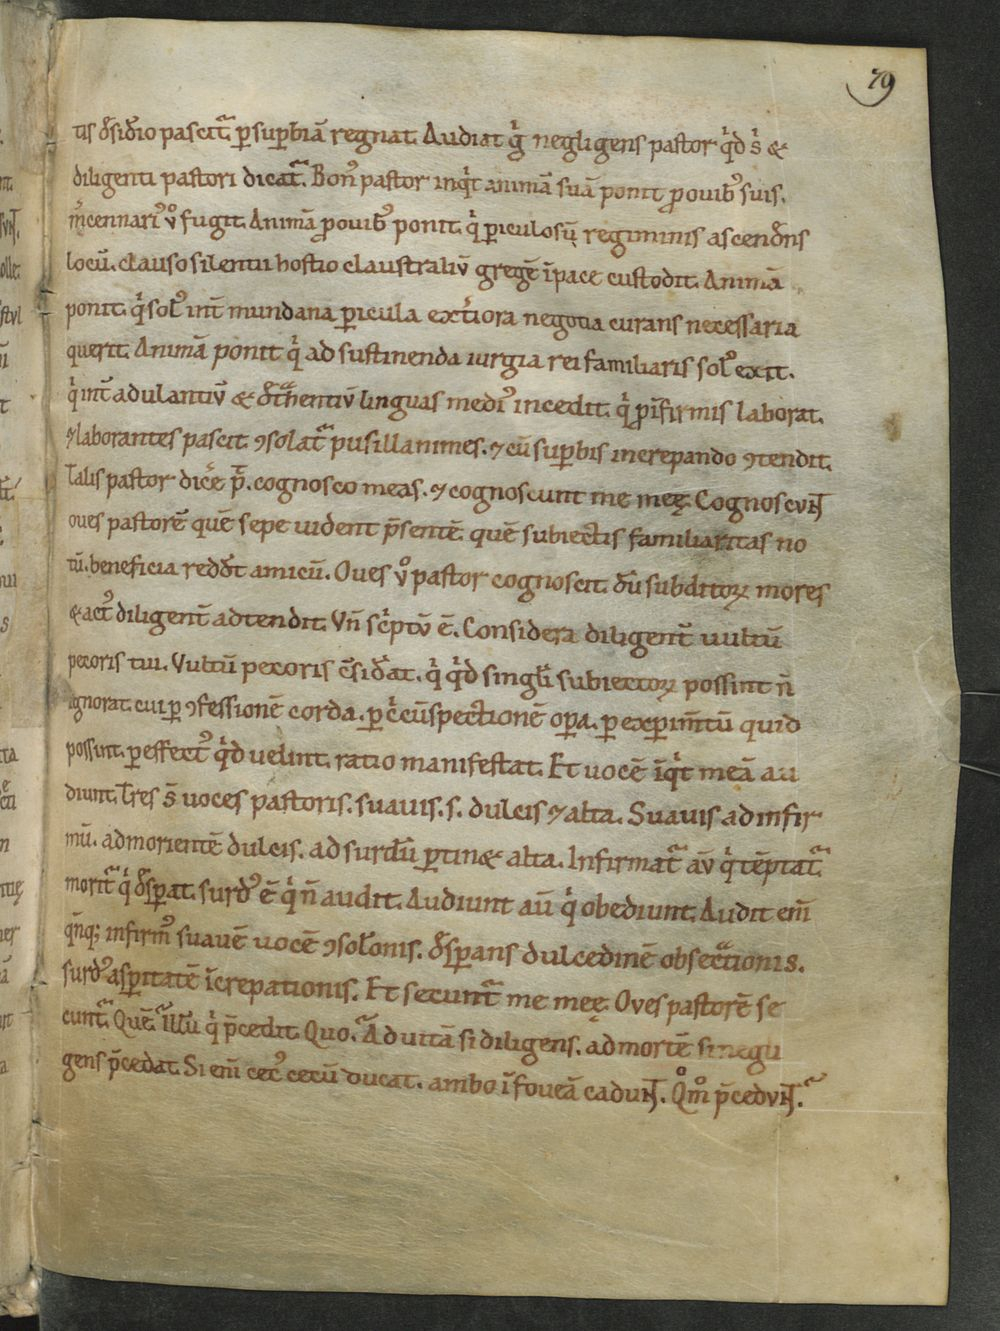 79
tis desiderio pascit᷑ ꝑ suꝑbiā regnat. Audiat g̊ negligens pastor qͥd s̉ &
diligenti pastori dicat᷑. Bonꝰ pastor inqͥt animā suā ponit ꝓ ouibꝰ suis.
m̉cennariꝰ v̊ fugit. Animā ꝓ ouibꝰ ponit. qͥ ꝑiculosū regiminis ascendens
locū. clauso silentii hostio claustraliū gregē ī pace custodit. Animā
ponit. qͥ solꝰ int̄ mundana ꝑicula extͥora negotia curans necessaria
querit. Animā ponit qͥ ad sustinenda iurgia rei familiaris solꝰ exit.
qͥ int̄ adulantiū & det̃hentiū linguas mediꝰ incedit. qͥ ꝓ īfirmis laborat.
⁊ laborantes pascit. ꝯsolat᷑ pusillanimes. ⁊ cū suꝑbis increpando ꝯtendit.
Talis pastor dic̉e p̄t. cognosco meas. ⁊ cognoscunt me meę. Cognoscunt
oues pastorē quē sepe uident p̄sentē. quē subiectis familiaritas no
tū. beneficia reddt̄ amicū. Oues v̊ pastor cognoscit. dū subditoꝝ mores
& actꝰ diligent̄ adtendit. Vn̄ scͥptū ē. Considera diligent̄ uultū
pecoris tui. Vultū pecoris c̄sidͣat. qͥ qͥd singłi subiectoꝝ possint n̄
ignorat. cui ꝑ ꝯfessionē corda. ꝑ cͥcūspectionē oꝑa. ꝑ exꝑim̄tū quid
possint. ꝑ effectꝰ qͥd uelint. ratio manifestat. Et uocē īqͥt meā au
diunt. Tres s̄ uoces pastoris. suauis. s. dulcis ⁊ alta. Suauis ad infir
mū. ad morientē dulcis. ad surdū ꝑtin& alta. Infirmat᷑ aū qͥ tēptat᷑.
morit᷑ qͥ desꝑat. surdꝰ ē qͥ n̄ audit. Audiunt aū qͥ obediunt. Audit em̄
qn̄q; infirmꝰ suauē uocē ꝯsolōnis. desꝑans dulcedinē obsecͣtionis.
surdꝰ asꝑitatē īcrepationis. Et secunt᷑ me meę. Oves pastorē se
cunt᷑. Quē᷑ Illū qͥ p̄cedit. Quo᷑. Ad uitā si diligens. ad mortē si negli
gens p̄cedat. Si em̄ cecꝰ cecū ducat. ambo ī foueā cadunt. Qͦm̊ p̄cedunt᷑.